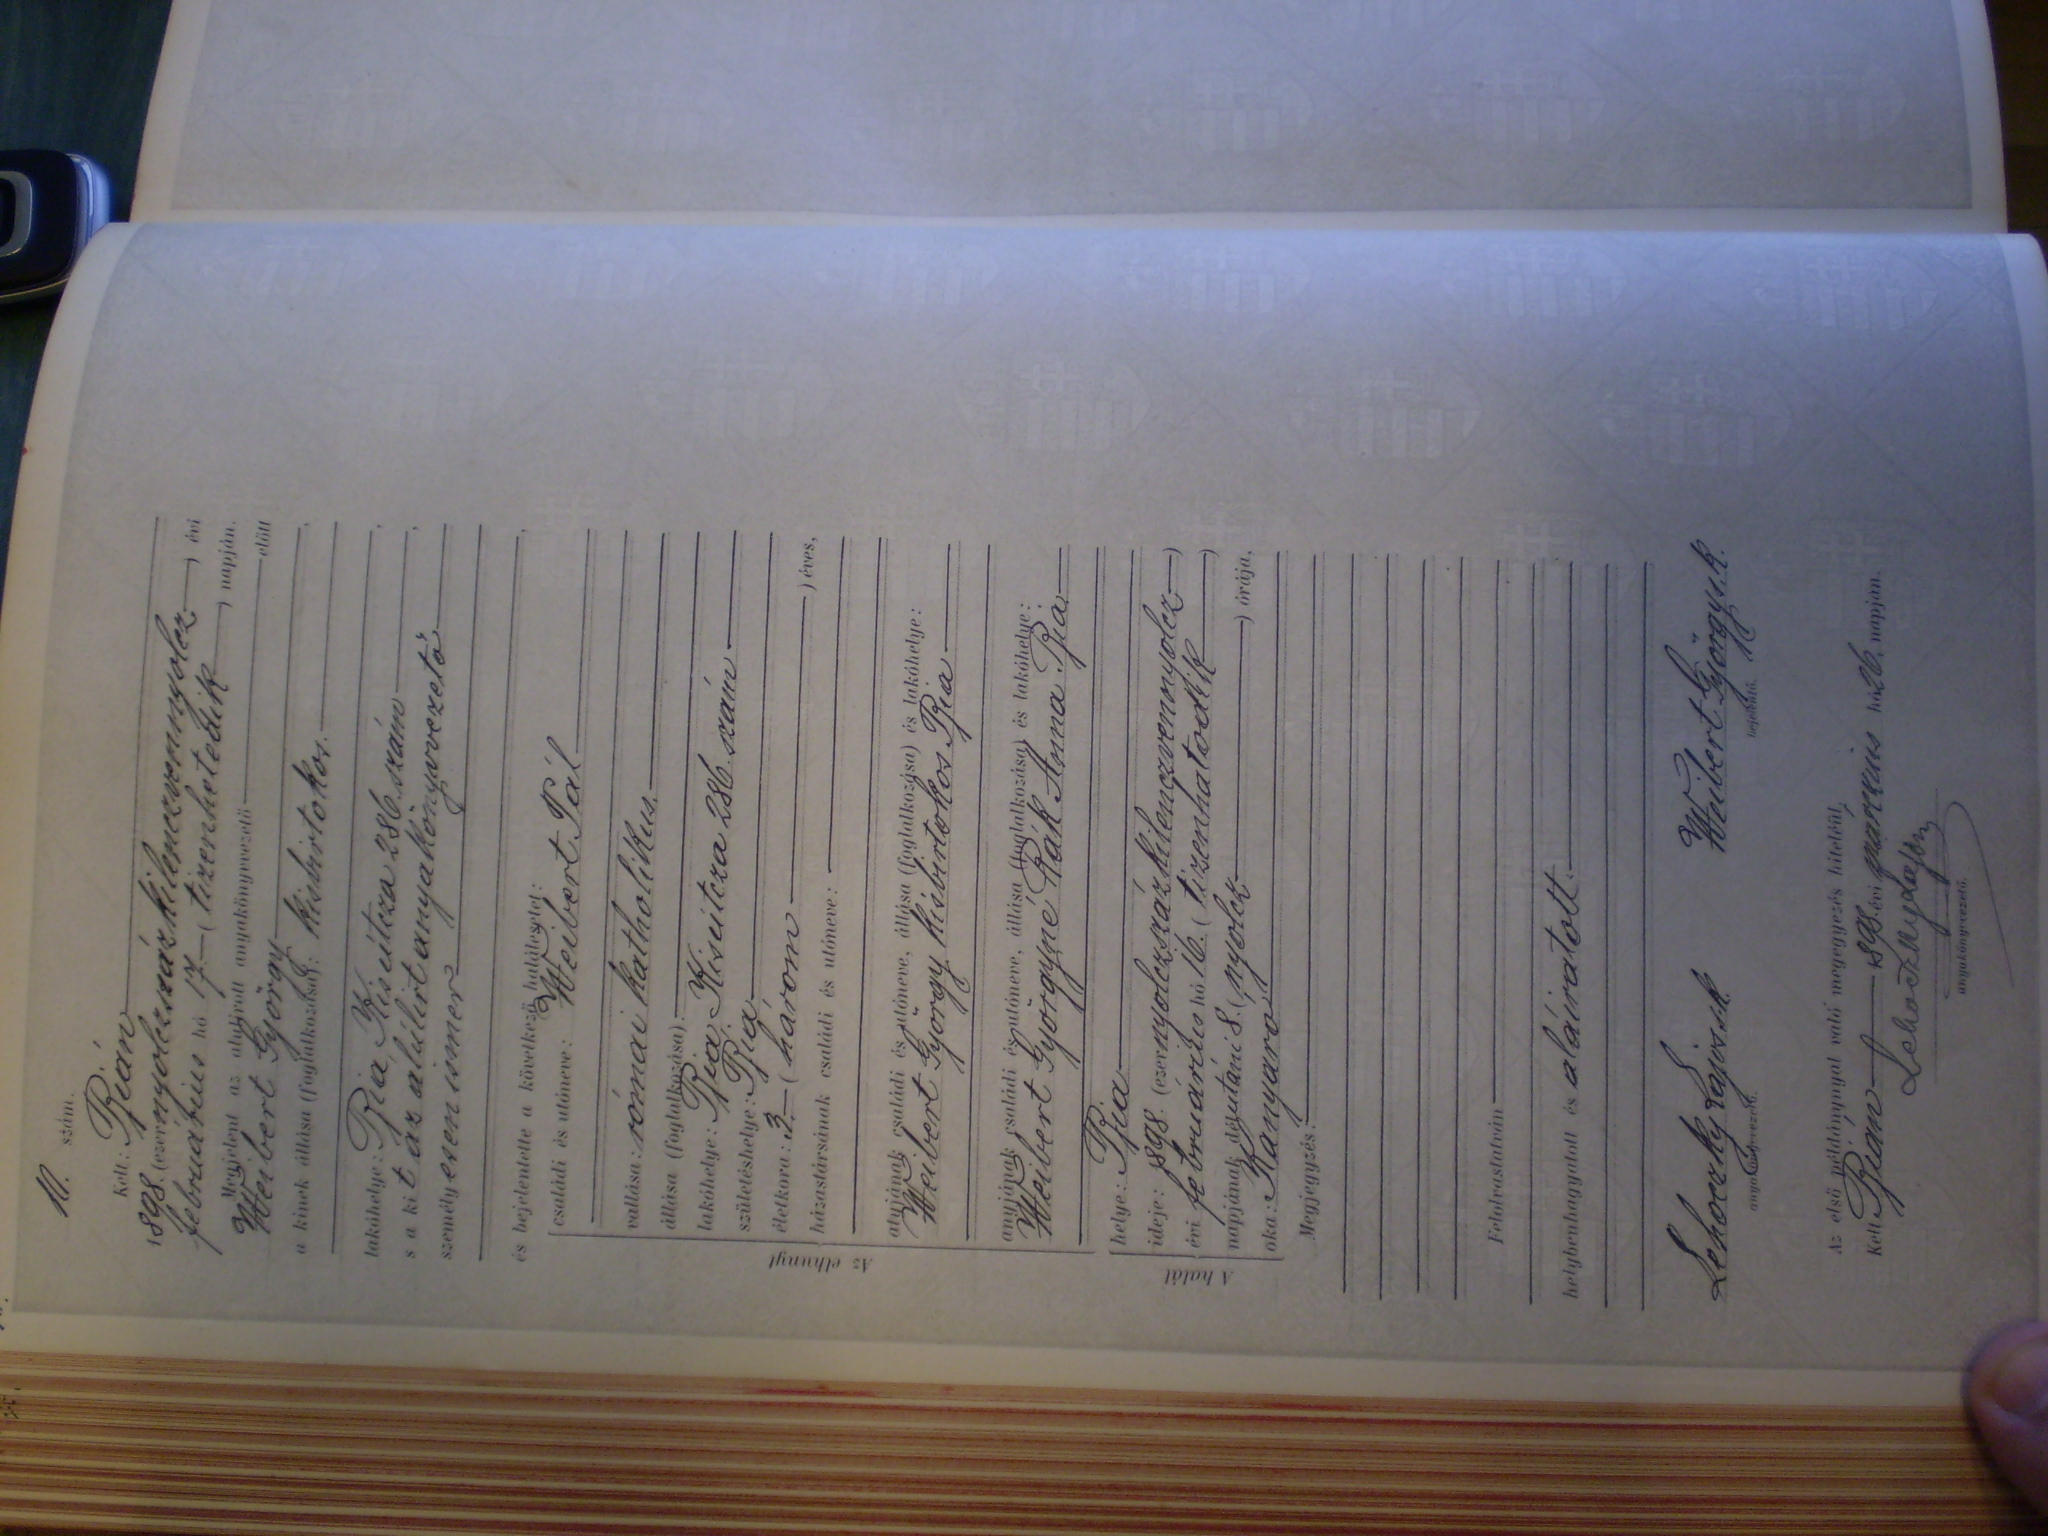 10. szám.
Kelt: Bián
1898. (ezernyolczszázkilenczvennyolcz) évi
februárius hó 17 (tizenhetedik) napján.
Megjelent az alulirott anyakönyvvezető előtt
Weibert György
a kinek állása (foglalkozása): kisbirtokos.
lakóhelye: Bia Kis utcza 286. szám,
s a kit az alulirt anyakönyvvezető
személyesen ismer,
és bejelentette a következő halálesetet:
Az elhunyt
családi és utóneve: Weibert Pál
vallása: római katholikus.
állása (foglalkozása)
lakóhelye: Bia Kis utcza 286. szám
születéshelye: Bia
életkora: 3. (három) éves,
házastársának családi és utóneve:
atyjának családi és utóneve, állása (foglalkozása) és lakóhelye:
Weibert György kisbirtokos Bia
anyjának családi és utóneve, állása (foglalkozása) és lakóhelye:
Weibert Györgyné Rák Anna Bia
A halál
helye: Bia
ideje: 1898. (ezernyolczszázkilenczvennyolcz)
évi februárius hó 16. (tizenhatodik)
napjának délutáni 8. (nyolcz) órája,
oka: Kanyaró
Megjegyzés:
Felolvastatván
helybenhagyatott és aláiratott.
Lehoczky Lajos s.k. Weibert György s.k.
anyakönyvvezető. bejelentő.
Az első példánynyal való megegyezés hiteléül,
Kelt Bián 1898. évi márczius hó 26. napján.
Lehoczky Lajos
anyakönyvvezető.